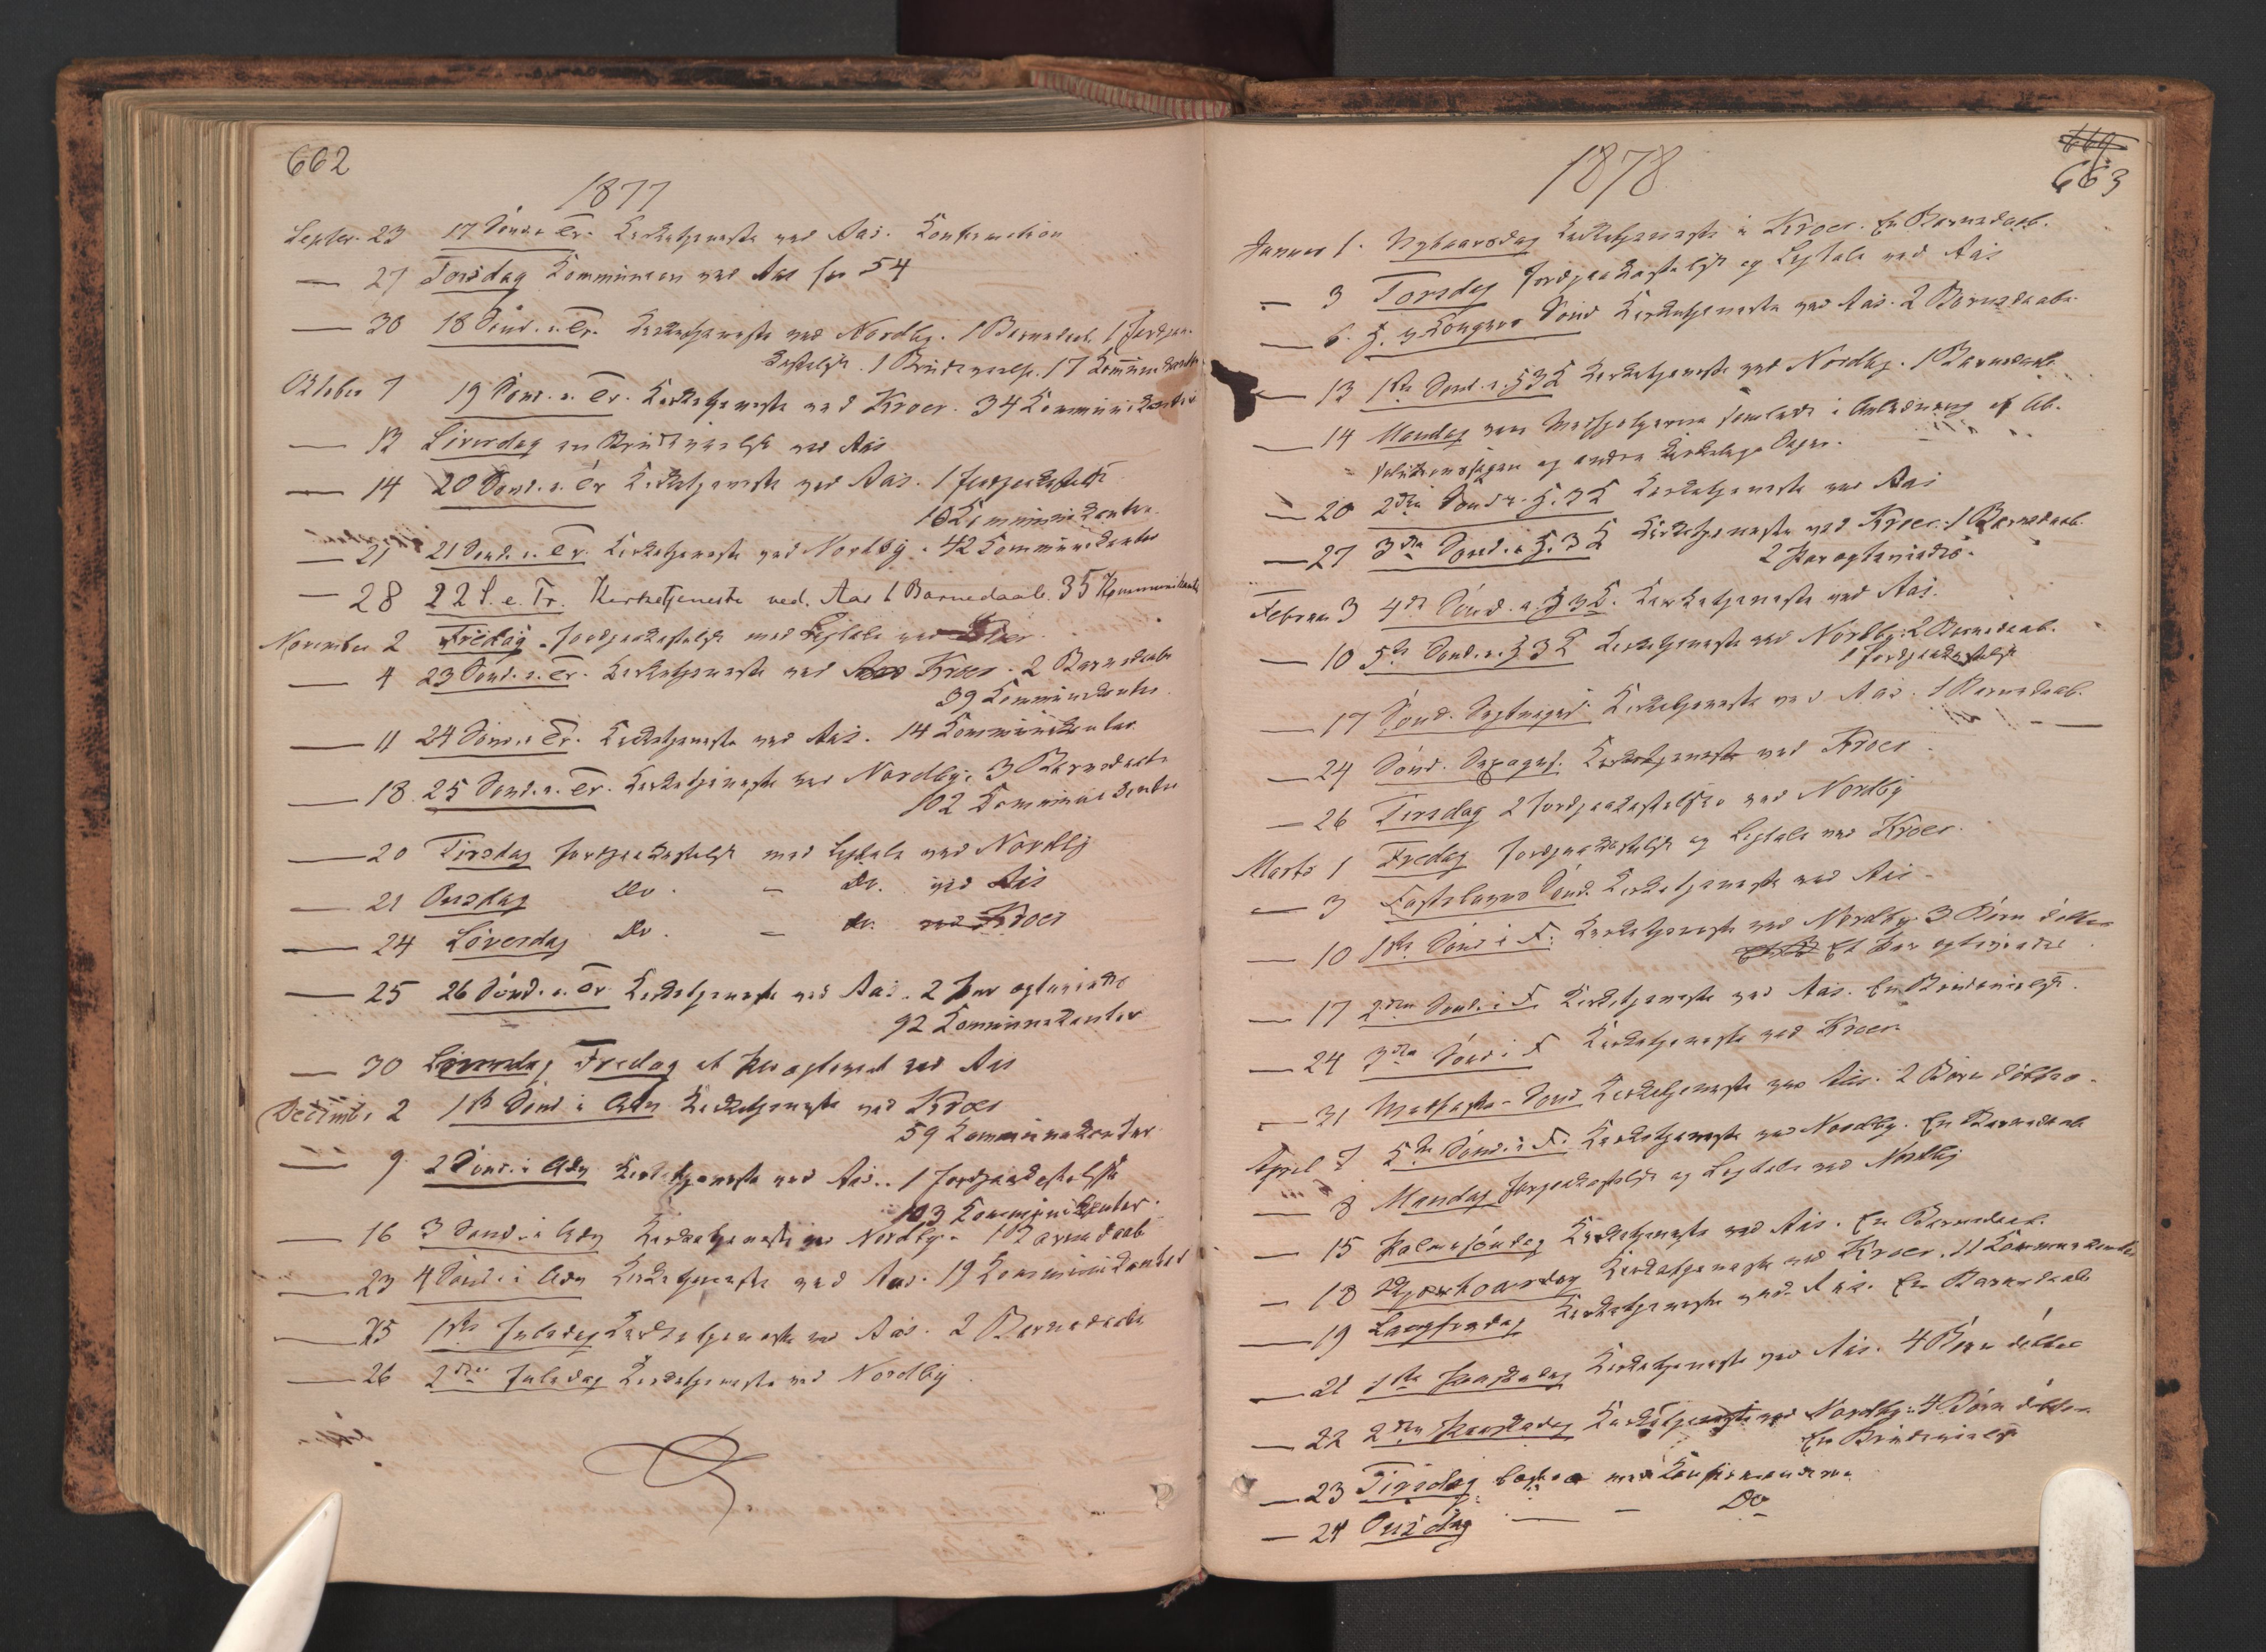 662
1877
Septbr. 23 17 Sönd. e. Tr. Kirketjeneste ved Aas. Konfirmation
— 27 Torsdag Kommunion ved Aas for 54
— 30 18 Sönd. e. Tr. Kirketjeneste ved Nordby. 1 Barnedaab. 1 Jordpaa-
kastelse. 1 Brudevielse. 17 Kommunikanter
Oktober 7 19 Sönd. e. Tr. Kirketjeneste ved Kroer. 34 Kommunikanter
— 13 Löverdag en Brudevielse ved Aas
— 14 20 Sönd. e. Tr. Kirketjeneste ved Aas. 1 Jordpaakastelse
16 Kommunikanter
— 21 21 Sönd. e. Tr. Kirketjeneste ved Nordby. 42 Kommunikanter
— 28 22 S. e. Tr. Kirketjeneste ved. Aas 1 Barnedaab. 35 Kommunikanter
November 2 Fredag Jordpaakastelse med Ligtale ved Kroer.
— 4 23 Sönd. e. Tr. Kirketjeneste ved Kroer. 2 Barnedaabe
39 Kommunikanter.
— 11 24 Sönd. e. Tr. Kirketjeneste ved Aas. 14 Kommunikanter
— 18 25 Sönd. e. Tr. Kirketjeneste ved Nordby. 3 Barnedaabe
102 Kommunikanter
— 20 Tirsdag Jordpaakastelse med Ligtale ved Nordby
— 21 Onsdag Do. — do. ved Aas
— 24 Löverdag Do. — do. ved Kroer
— 25 26 Sönd. e. Tr. Kirketjeneste ved Aas. 2 Par ogteviede
92 Kommunikanter
— 30 Löverdag Fredag et Par ogteviet ved Aas
Decembr. 2 1ste Sönd. i Adv. Kirketjeneste ved Kroer
59 Kommunikanter
— 9 2 Sönd. i Adv. Kirketjeneste ved Aas. 1 Jordpaakastelse
103 Kommunikanter.
— 16 3 Sönd. i Adv. Kirketjeneste ved Nordby. 1 Barnedaab
— 23 4 Sönd. i Adv. Kirketjeneste ved Aas. 19 Kommunikanter
— 25 1ste Juledag Kirketjeneste ved Aas. 2 Barnedaabe
— 26 2den Juledag Kirketjeneste ved Nordby
1878
664
663
Januar 1. Nytaarsdag Kirketjeneste i Kroer. En Barnedaab.
— 3 Torsdag Jordpaakastelse og Ligtale ved Aas
— 6. H. 3 Kongers Sönd Kirketjeneste ved Aas. 2 Barnedaabe.
— 13 1ste Sönd. e. H3K Kirketjeneste ved Nordby. 1 Barnedaab
— 14 Mandag vare Medhjelperne samlede i Anledning af Ab-
solutionssagen og andre kirkelige Sager.
— 20 2den Sönd. e. H. 3K Kirketjeneste ved Aas
— 27 3die Sönd. e. H. 3K Kirketjeneste ved Kroer. 1 Barnedaab.
2 Par ogteviedes.
Februar 3 4de Sönd. e. H3K. Kirketjeneste ved Aas.
— 10 5te Sönd. e. H3K Kirketjeneste ved Nordby. 2 Barnedaab.
1 Jordpaakastelse
— 17 Sönd. Septuages. Kirketjeneste ved Aas. 1 Barnedaab.
— 24 Sönd. Sexages. Kirketjeneste ved Kroer.
— 26 Tirsdag 2 Jordpaakastelser ved Nordby
Marts 1 Fredag Jordpaakastelse og Ligtale ved Kroer.
— 3 Fastelavns Sönd. Kirketjeneste ved Aas.
— 10 1ste Sönd i F. Kirketjeneste ved Nordby. 3 Börn döbte
Et Par ogteviedes.
— 17 2den Sönd. i F. Kirketjeneste ved Aas. En Brudevielse.
— 24 3die Sönd i F Kirketjeneste ved Kroer
— 31 Midfaste-Sönd Kirketjeneste ved Aas. 2 Börn döbtes.
April 7 5te Sönd. i F. Kirketjeneste ved Nordby. En Barnedaab
— 8 Mandag Jordpaakastelse og Ligtale ved Nordby
— 15 Palmesöndag Kirketjeneste ved Aas. En Barnedaab.
— 18 Skjærtorsdag Kirketjeneste ved Kroer. 11 Kommunikanter
— 19 Langfredag Kirketjeneste ved Aas. En Barnedaab
— 21 1ste Paaskedag Kirketjeneste ved Aas. 4 Börn döbte
— 22 2den Paaskedag Kirketjeneste ved Nordby. 4 Börn döbte
En Brudevielse
— 23 Tirsdag læste med Konfirmanderne
— 24 Onsdag — — Do